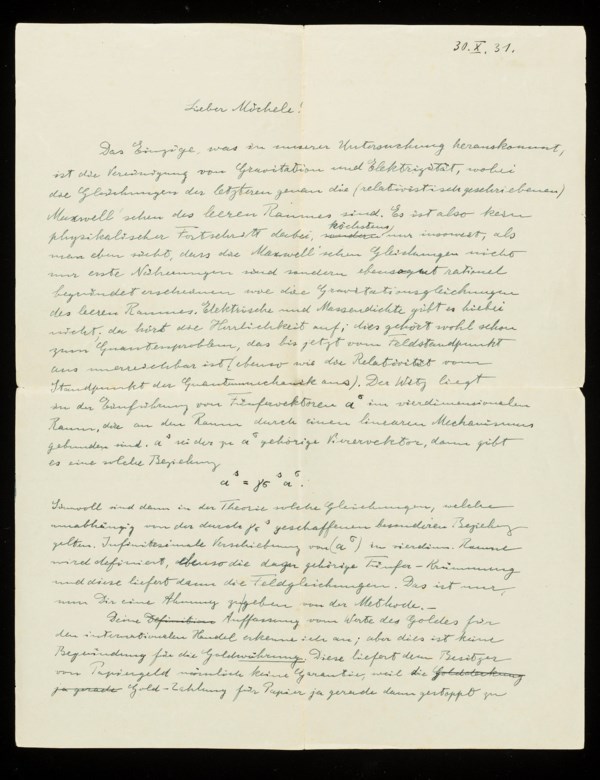 30. X. 31.
Lieber Michele!
Das Einzige, was in unserer Untersuchung herauskommt,
ist die Vereinigung von Gravitation und Elektrizität, wobei
die Gleichungen der letzteren genau die (relativistisch geschriebenen)
Maxwell'schen des leeren Raumes sind. Es ist also kein
physikalischer Fortschritt dabei, sondern höchstens nur insoweit, als
man eben sieht, dass die Maxwell'schen Gleichungen nicht
nur erste Näherungen sind sondern ebensogut rationell
begründet erscheinen wie die Gravitationsgleichungen
des leeren Raumes. Elektrische und Massendichte gibt es hiebei
nicht; da hört die Herrlichkeit auf; dies gehört wohl schon
zum Quantenproblem, das bis jetzt vom Feldstandpunkt
aus unerreichbar ist (ebenso wie die Relativität vom
Standpunkt der Quantenmechanik aus). Der Witz liegt
in der Einführung von Fünfervektoren aˢ im vierdimensionalen
Raum, die an den Raum durch einen linearen Mechanismus
gebunden sind. aˢ sei der zu aᵟ gehörige Vierervektor, dann gibt
es eine solche Beziehung
aˢ = γσˢ aᵟ.
Sinnvoll sind dann in der Theorie solche Gleichungen, welche
unabhängig von der durch γσˢ geschaffenen besonderen Beziehg
gelten. Infinitesimale Verschiebung von (aᵟ) im vierdim. Raume
wird definiert, ebenso die dazu gehörige Fünfer-Krümmung
und diese liefert dann die Feldgleichungen. Das ist nur,
um Dir eine Ahnung zu geben von der Methode. –
Deine Definition Auffassung vom Werte des Goldes für
den internationalen Handel erkenne ich an; aber dies ist keine
Begründung für die Goldwährung. Diese liefert dem Besitzer
von Papiergeld nämlich keine Garantie, weil die Golddeckung
ja gerade Gold-Zahlung für Papier ja gerade dann gestoppt zu